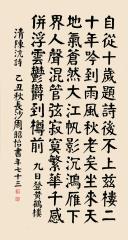 自從十歲題詩後不上茲樓二
十年吟到雨風秋老矣坐來天
地氣蒼然大江帆影沉鴻雁下
界人聲混管弦寂寞繁華千感
併浮雲鬱鬱到樽前 九日登黃鶴樓
清陳沆詩 乙丑秋長沙周昭怡書年七十三